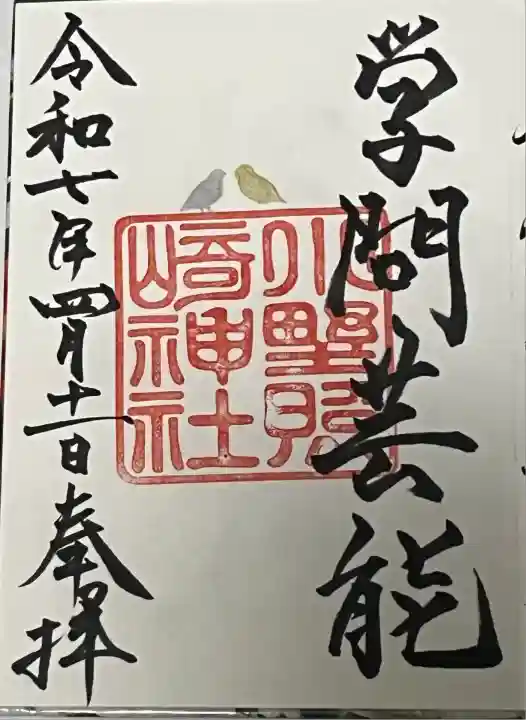 学問芸能
小野照
崎神社
令和七年四月十一日奉拝